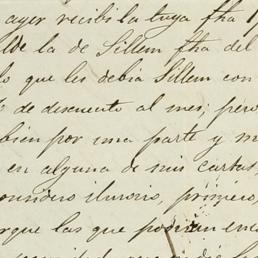 ayer recibi la tuya fha 1
de la de Sillem fha del
lo que les debia Sillem con
de descuento al mes; pero
bien por una parte y m
en alguna de mis cartas,
considero ilusorio, primero,
rque las que podrian enc